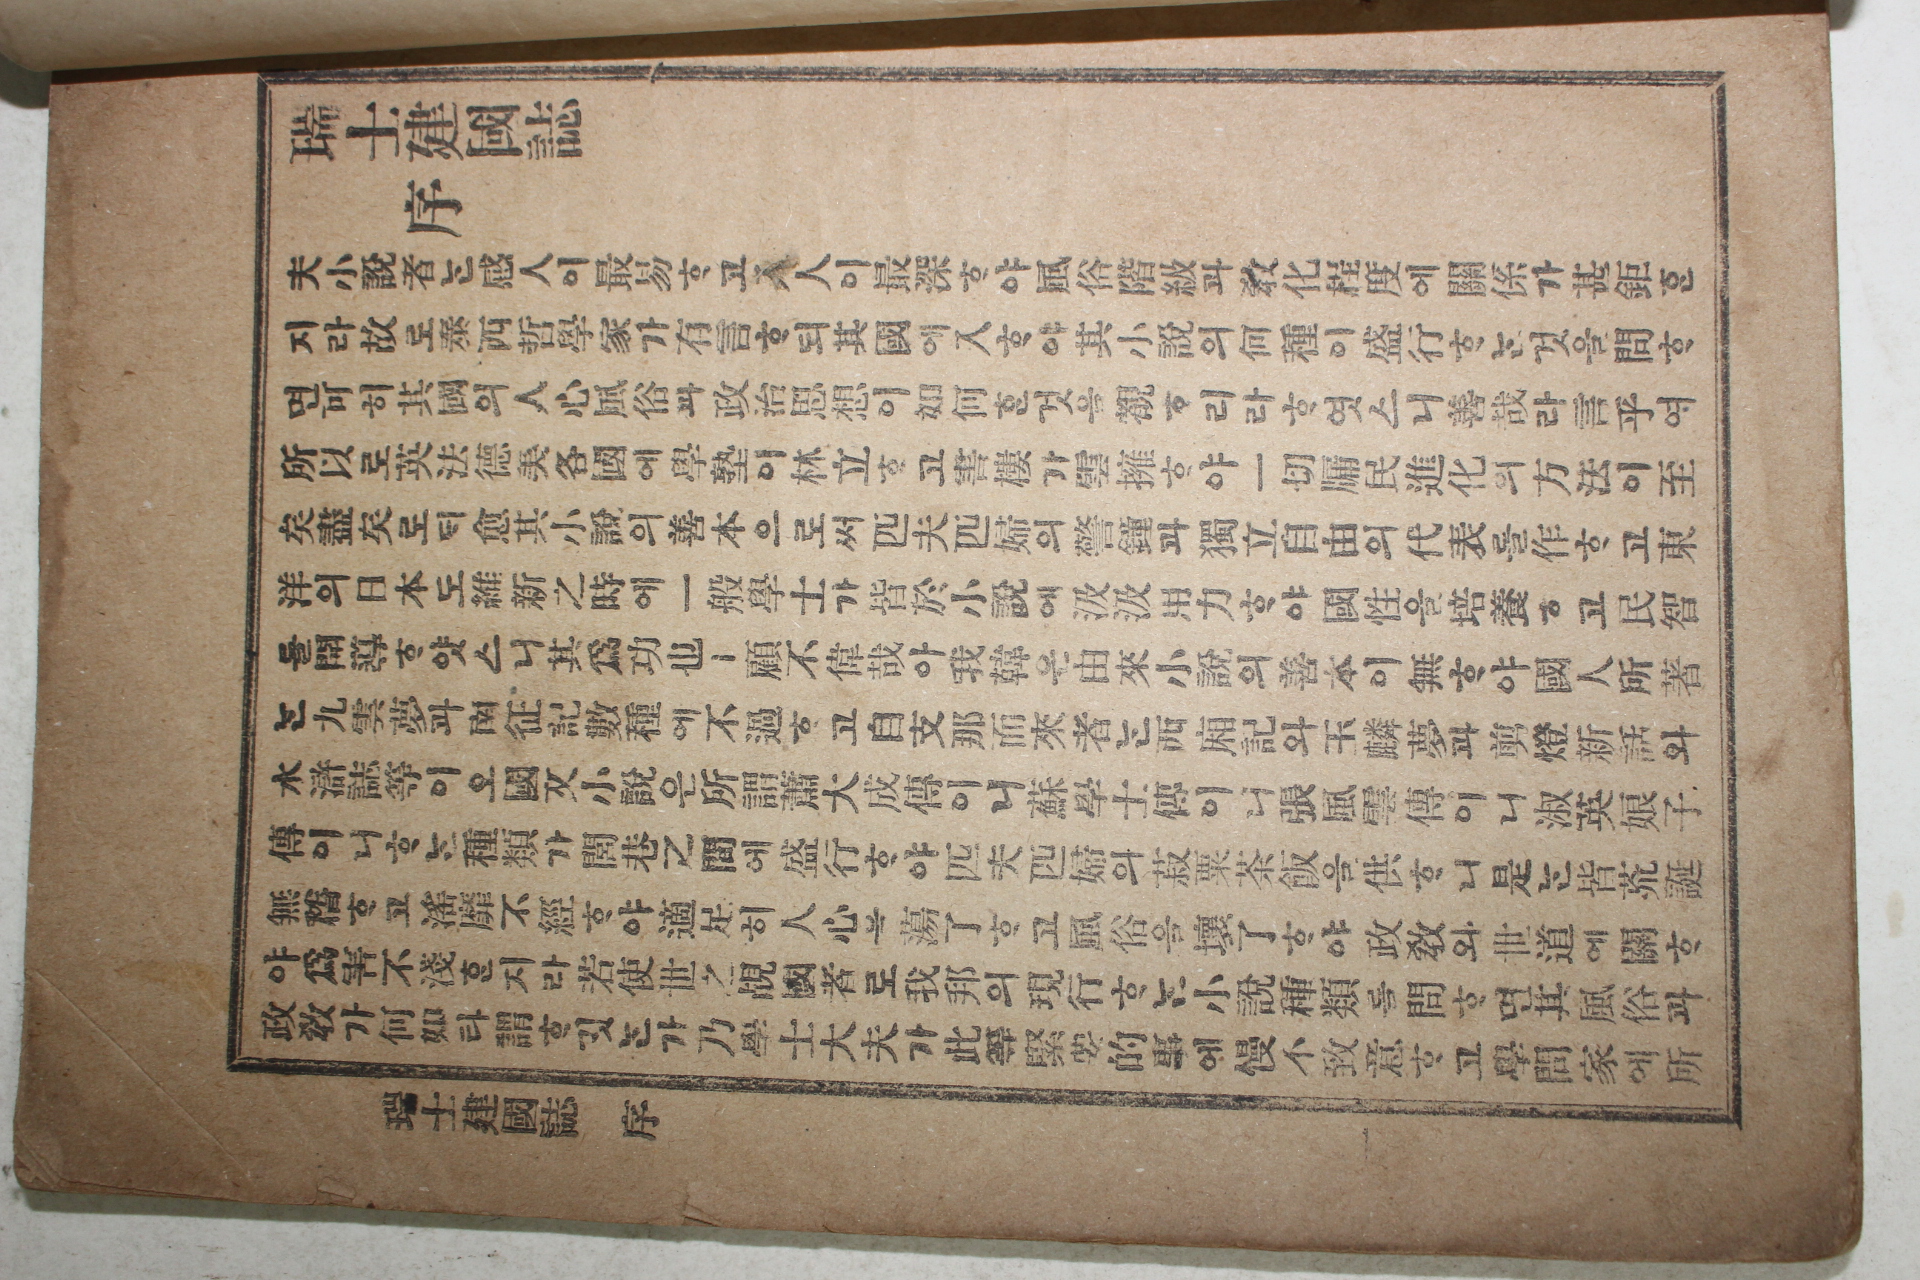 瑞士建國誌
序
夫小說者는感人이最易ᄒᆞ고入人이最深ᄒᆞ야風俗階級과敎化程度에關係가甚鉅ᄒᆞᆫ
지라故로泰西哲學家가有言ᄒᆞ되其國에入ᄒᆞ야其小說의何種이盛行ᄒᆞᄂᆞᆫ것을問ᄒᆞ
면可히其國의人心風俗과政治思想이如何ᄒᆞᆫ것을覩ᄒᆞ리라ᄒᆞ엿스니善哉라言乎여
所以로英法德美各國에學塾이林立ᄒᆞ고書樓가雲擁ᄒᆞ야一切牖民進化의方法이至
矣盡矣로ᄃᆡ愈其小說의善本으로써匹夫匹婦의警鐘과獨立自由의代表를作ᄒᆞ고東
洋의日本도維新之時에一般學士가皆於小說에汲汲用力ᄒᆞ야國性을培養ᄒᆞ고民智
를開導ᄒᆞ얏스니其爲功也ㅣ顧不偉哉아我韓은由來小說의善本이無ᄒᆞ야國人所著
ᄂᆞᆫ九雲夢과南征記數種에不過ᄒᆞ고自支那而來者ᄂᆞᆫ西廂記와玉麟夢과剪燈新話와
水滸誌等이오國文小說은所謂蕭大成傳이니蘇學士傳이니張風雲傳이니淑英娘子
傳이니ᄒᆞᄂᆞᆫ種類가閭巷之間에盛行ᄒᆞ야匹夫匹婦의菽粟茶飯을供ᄒᆞ니是ᄂᆞᆫ皆荒誕
無稽ᄒᆞ고淫靡不經ᄒᆞ야適足히人心을蕩了ᄒᆞ고風俗을壞了ᄒᆞ야政敎와世道에關ᄒᆞ
야爲害不淺ᄒᆞᆫ지라若使世之覘國者로我邦의現行ᄒᆞᄂᆞᆫ小說種類를問ᄒᆞ면其風俗과
政敎가何如타謂ᄒᆞ깃ᄂᆞᆫ가乃學士大夫가此等緊要的事에慢不致意ᄒᆞ고學問家에所
瑞士建國誌 序